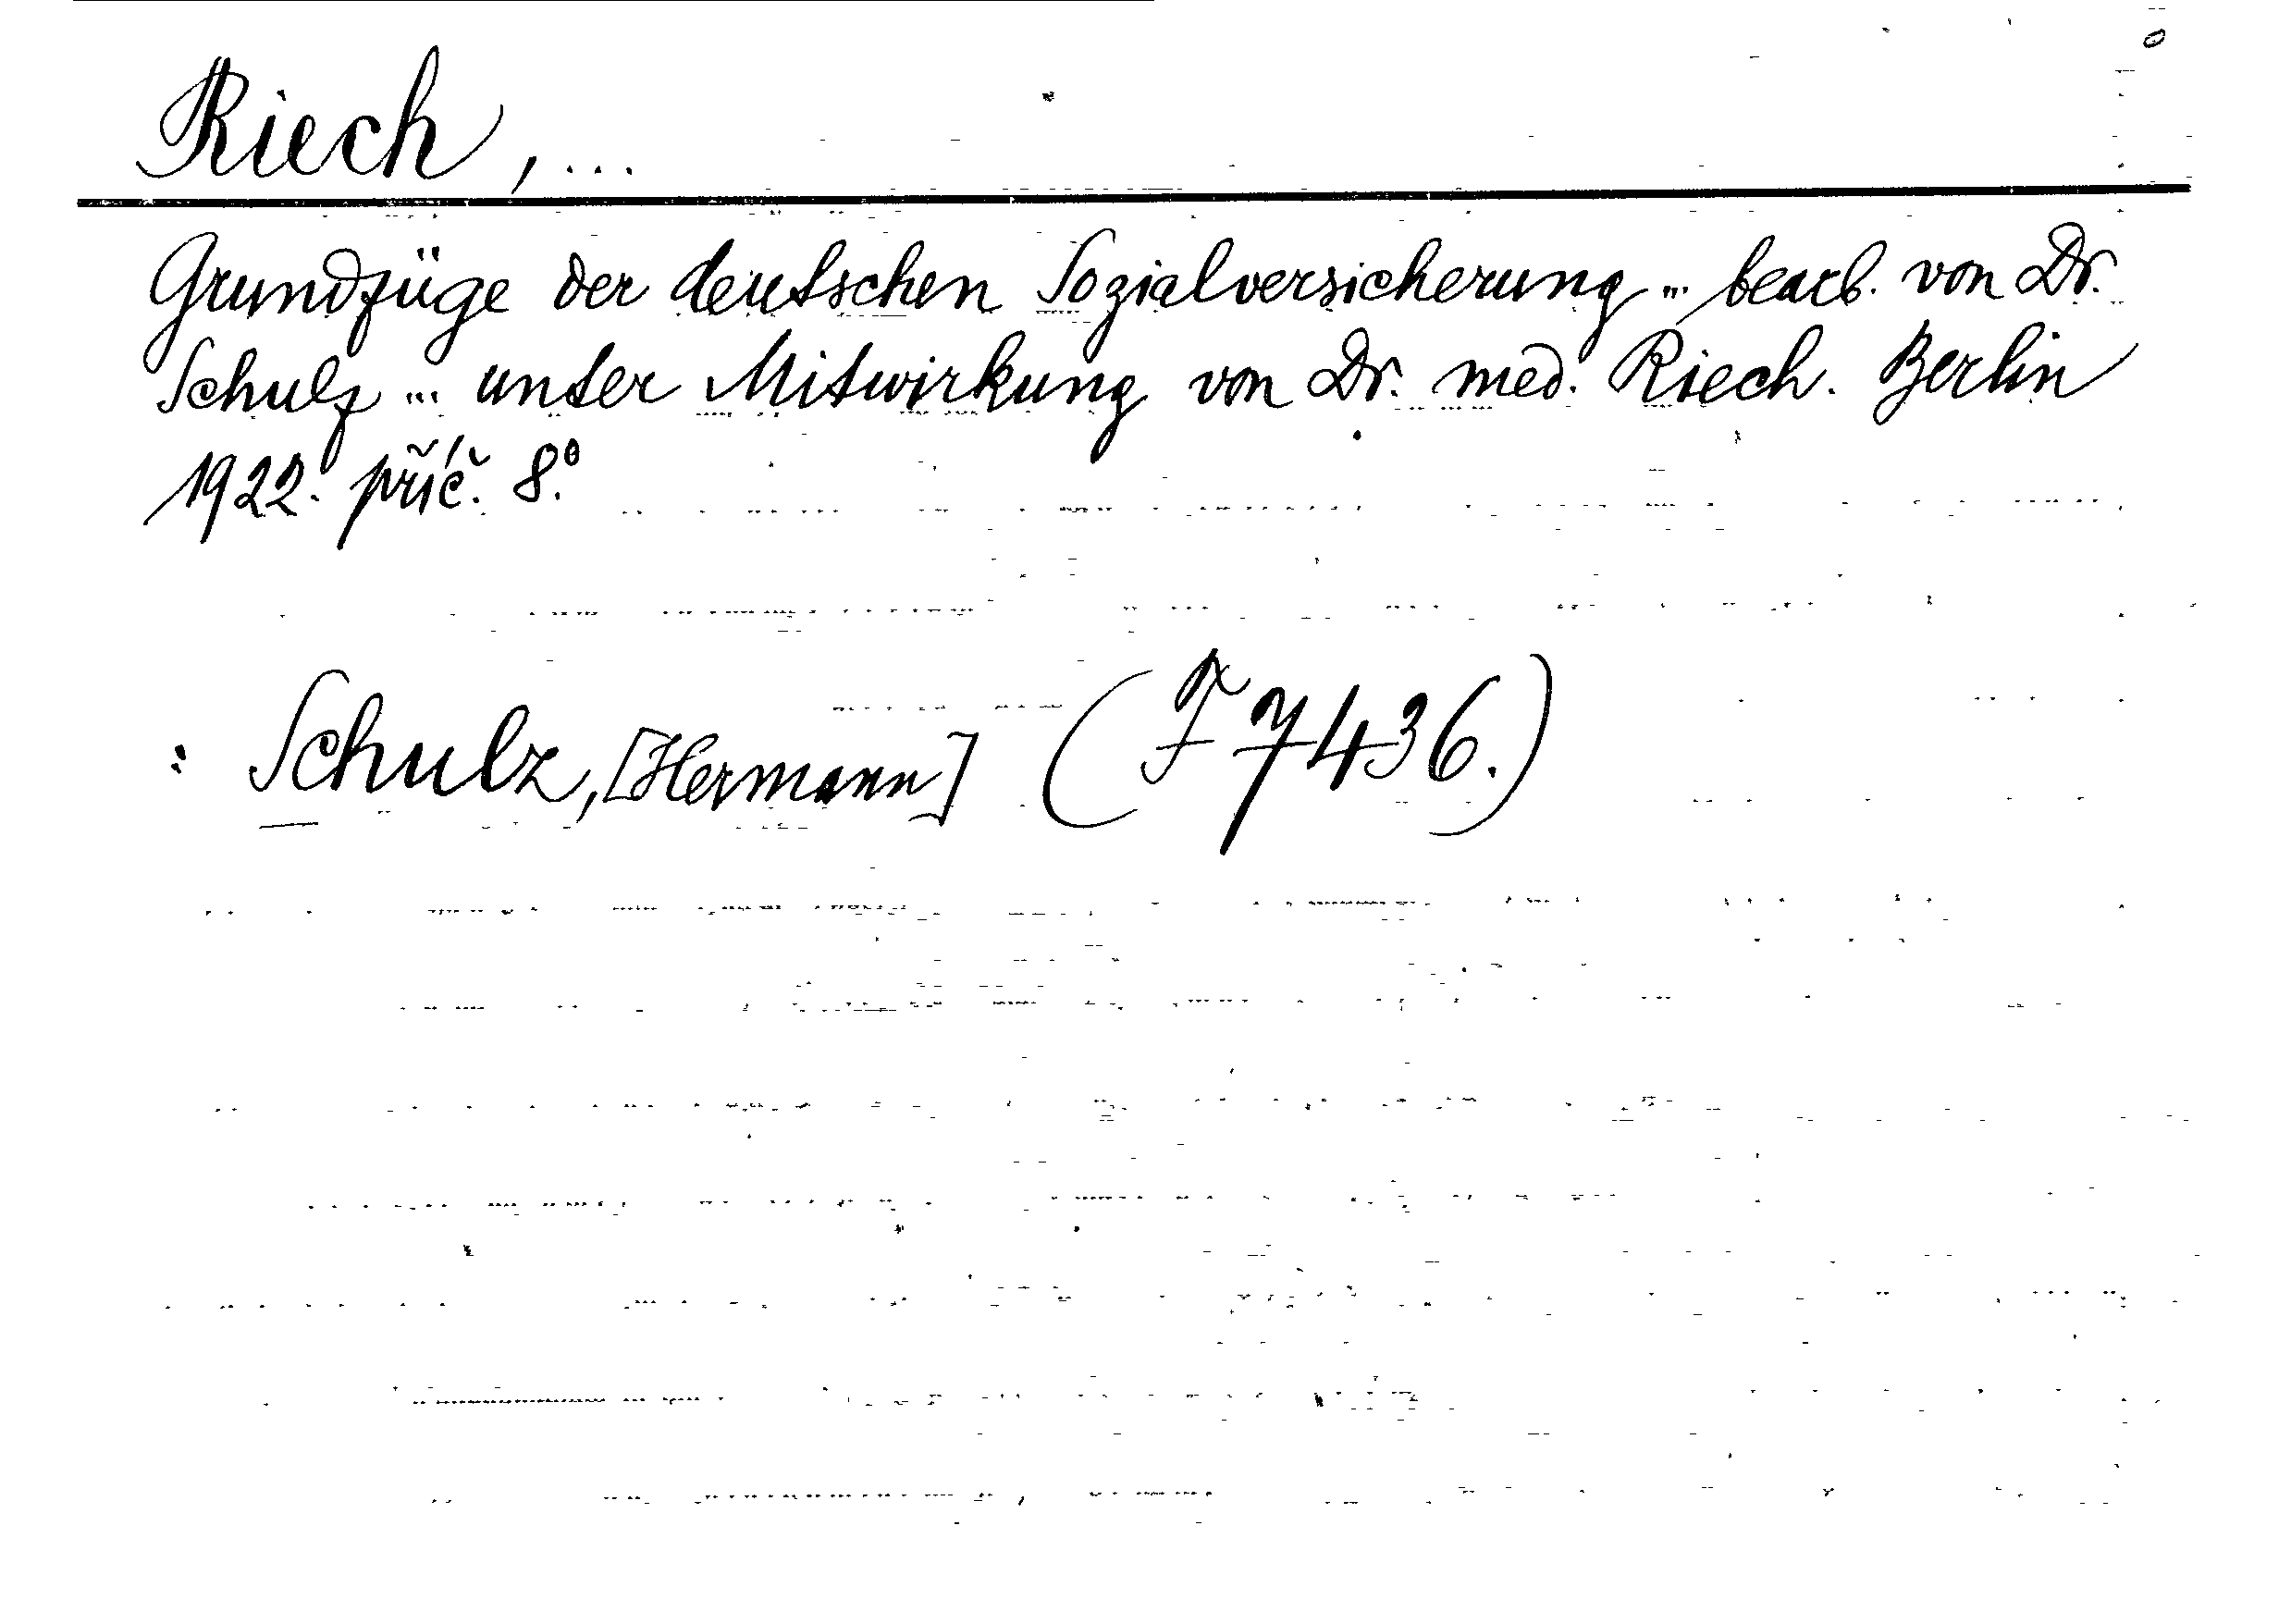 Riech, ...
Grundzüge der deutschen Sozialversicherung ... bearb. von Dr.
Schulz ... unter Mitwirkung von Dr. med. Riech. Berlin
1922. příč. 8.º
: Schulz, [Hermann] (F 7436.)